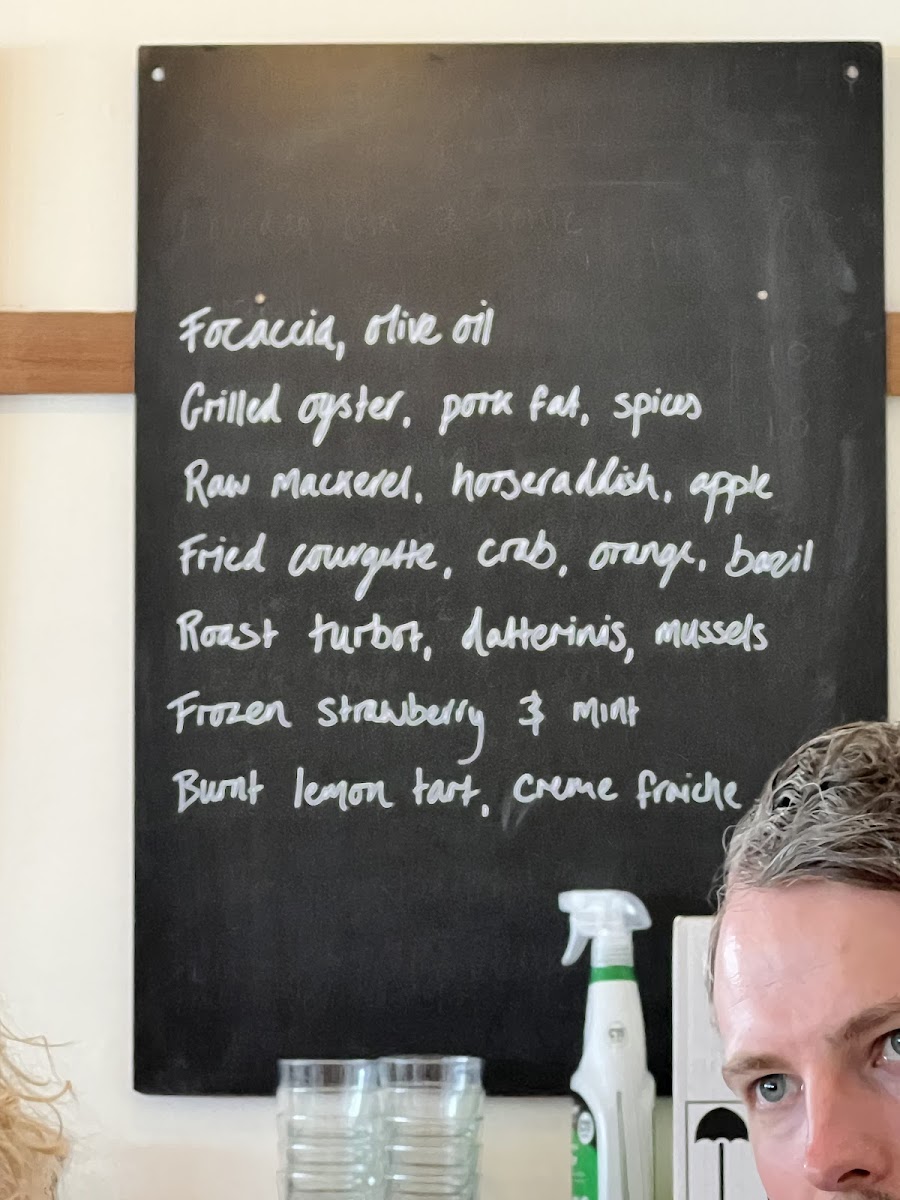 Focaccia, olive oil
Grilled oyster, pork fat, spices
Raw mackerel, horseraddish, apple
Fried courgette, crab, orange, bazil
Roast turbot, datterinis, mussels
Frozen strawberry & mint
Burnt lemon tart, creme fraiche